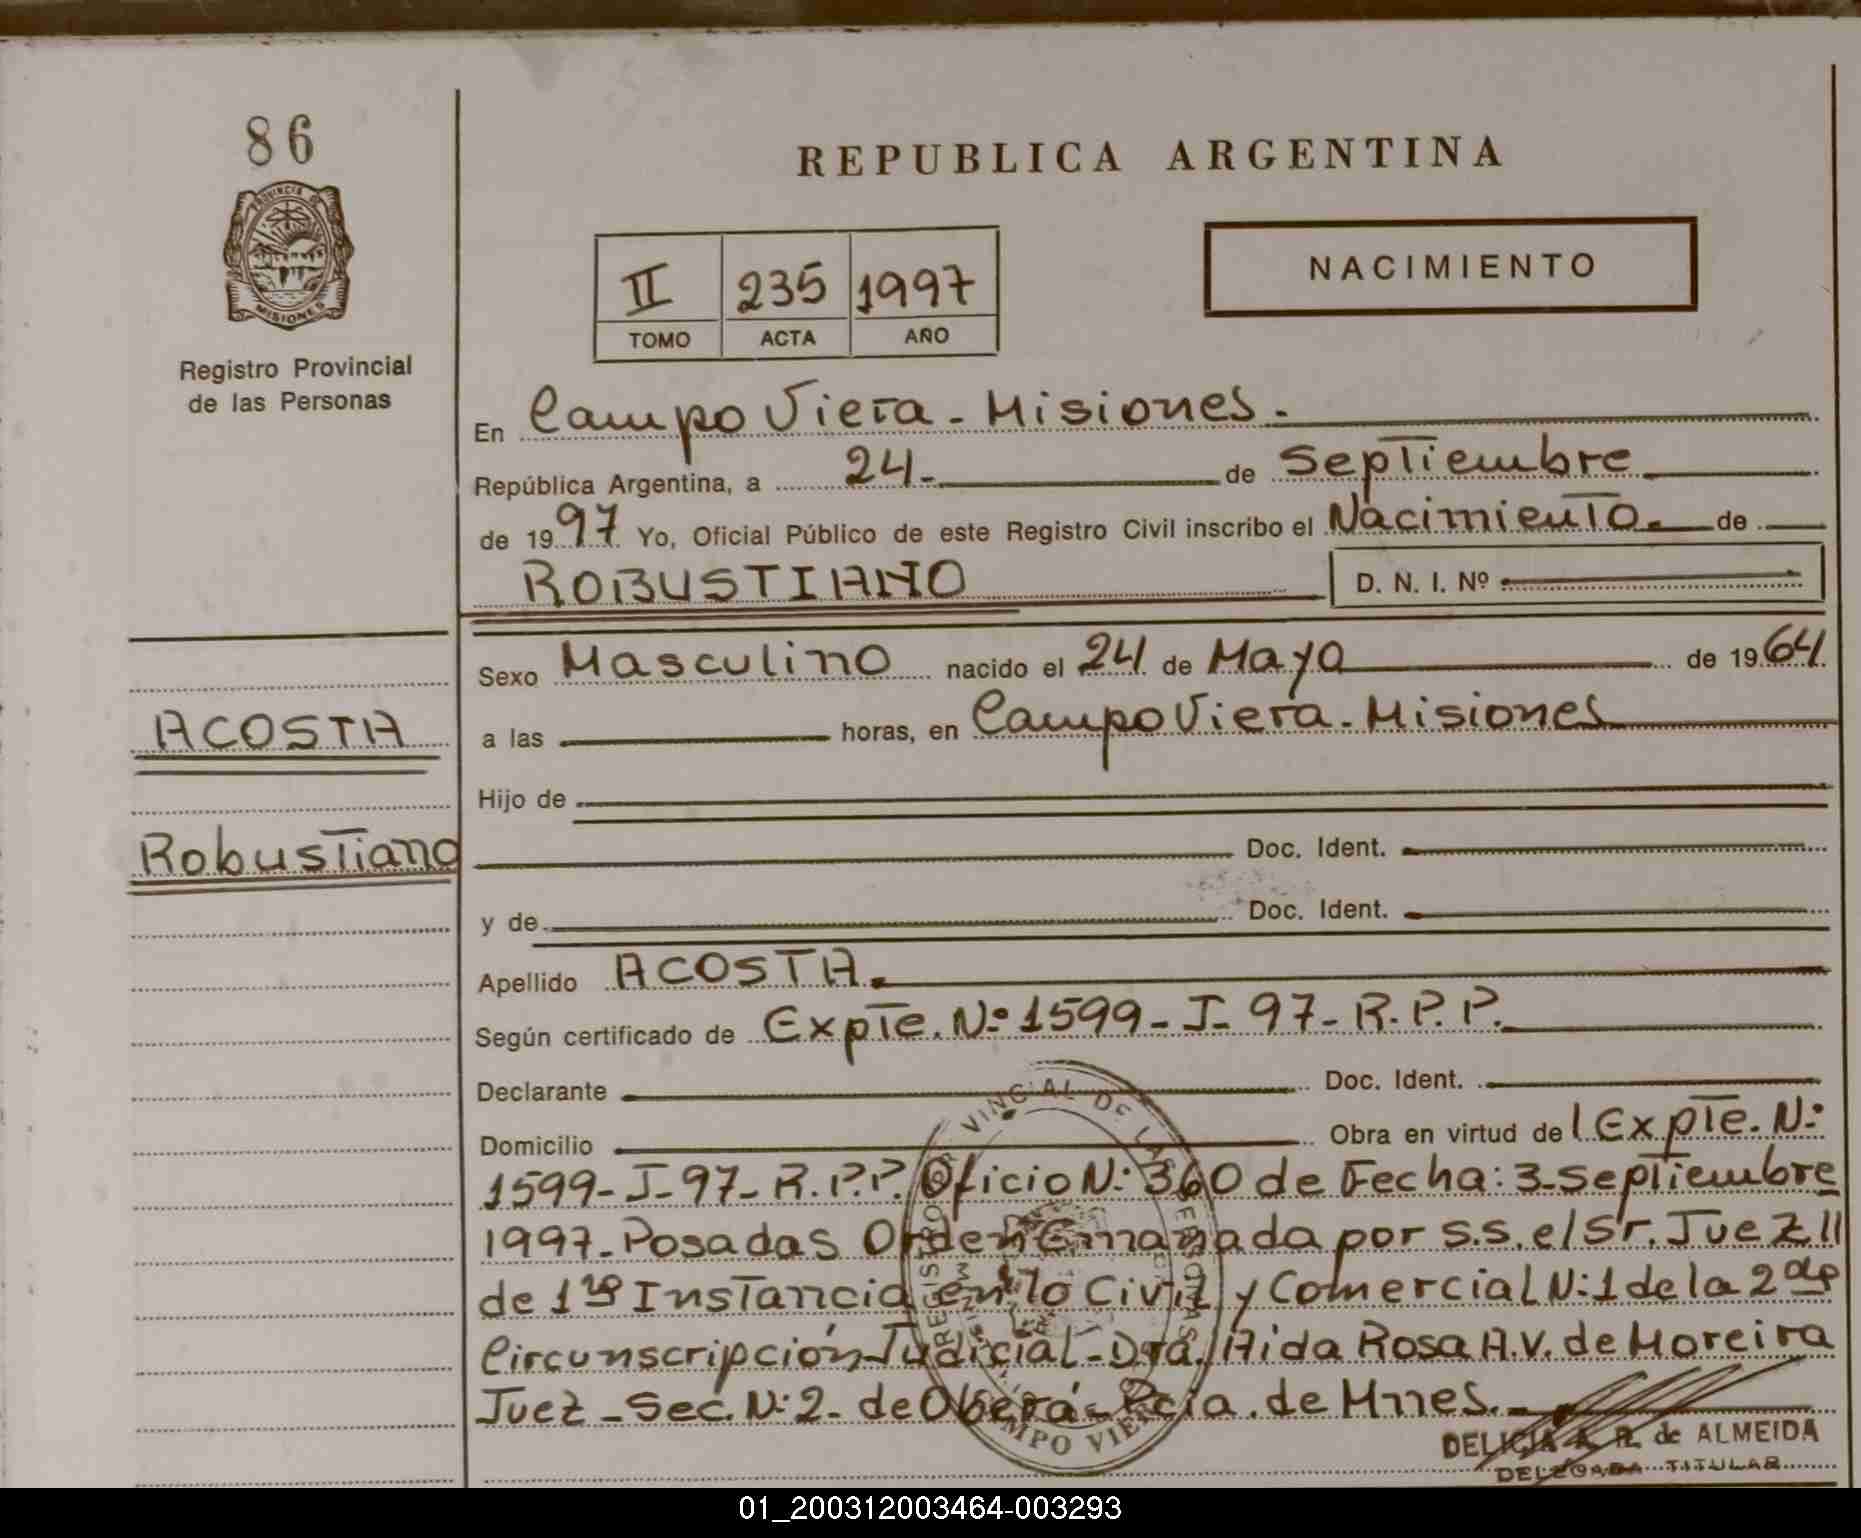 86
PROVINCIA DE
MISIONES
Registro Provincial
de las Personas
REPUBLICA ARGENTINA
II 235 1997
TOMO ACTA AÑO
NACIMIENTO
En Campo Viera - Misiones.
República Argentina, a 24 de Septiembre
de 1997 Yo, Oficial Público de este Registro Civil inscribo el Nacimiento. de
ROBUSTIANO D. N. I. Nº
Sexo Masculino nacido el 24 de Mayo de 1964
a las horas, en Campo Viera - Misiones
Hijo de
Doc. Ident.
y de Doc. Ident.
Apellido ACOSTA.
Según certificado de Expte. Nº 1599 - J - 97 - R.P.P.
Declarante Doc. Ident.
Domicilio Obra en virtud del Expte. Nº
1599 - J - 97 - R.P.P. Oficio Nº 360 de Fecha: 3 - Septiembre
1997 - Posadas Orden Emanada por S.S. el Sr. Juez
de 1ra Instancia en lo Civil y Comercial Nº 1 de la 2da
Circunscripción Judicial - Dra. Aida Rosa A.V. de Moreira
Juez - Sec. Nº 2 - de Oberá - Pcia. de Mnes.
ACOSTA
Robustiano
REGISTRO PROVINCIAL DE LAS PERSONAS
CAMPO VIERA
DELICIA A. R. de ALMEIDA
DELEGADA TITULAR
01_200312003464-003293